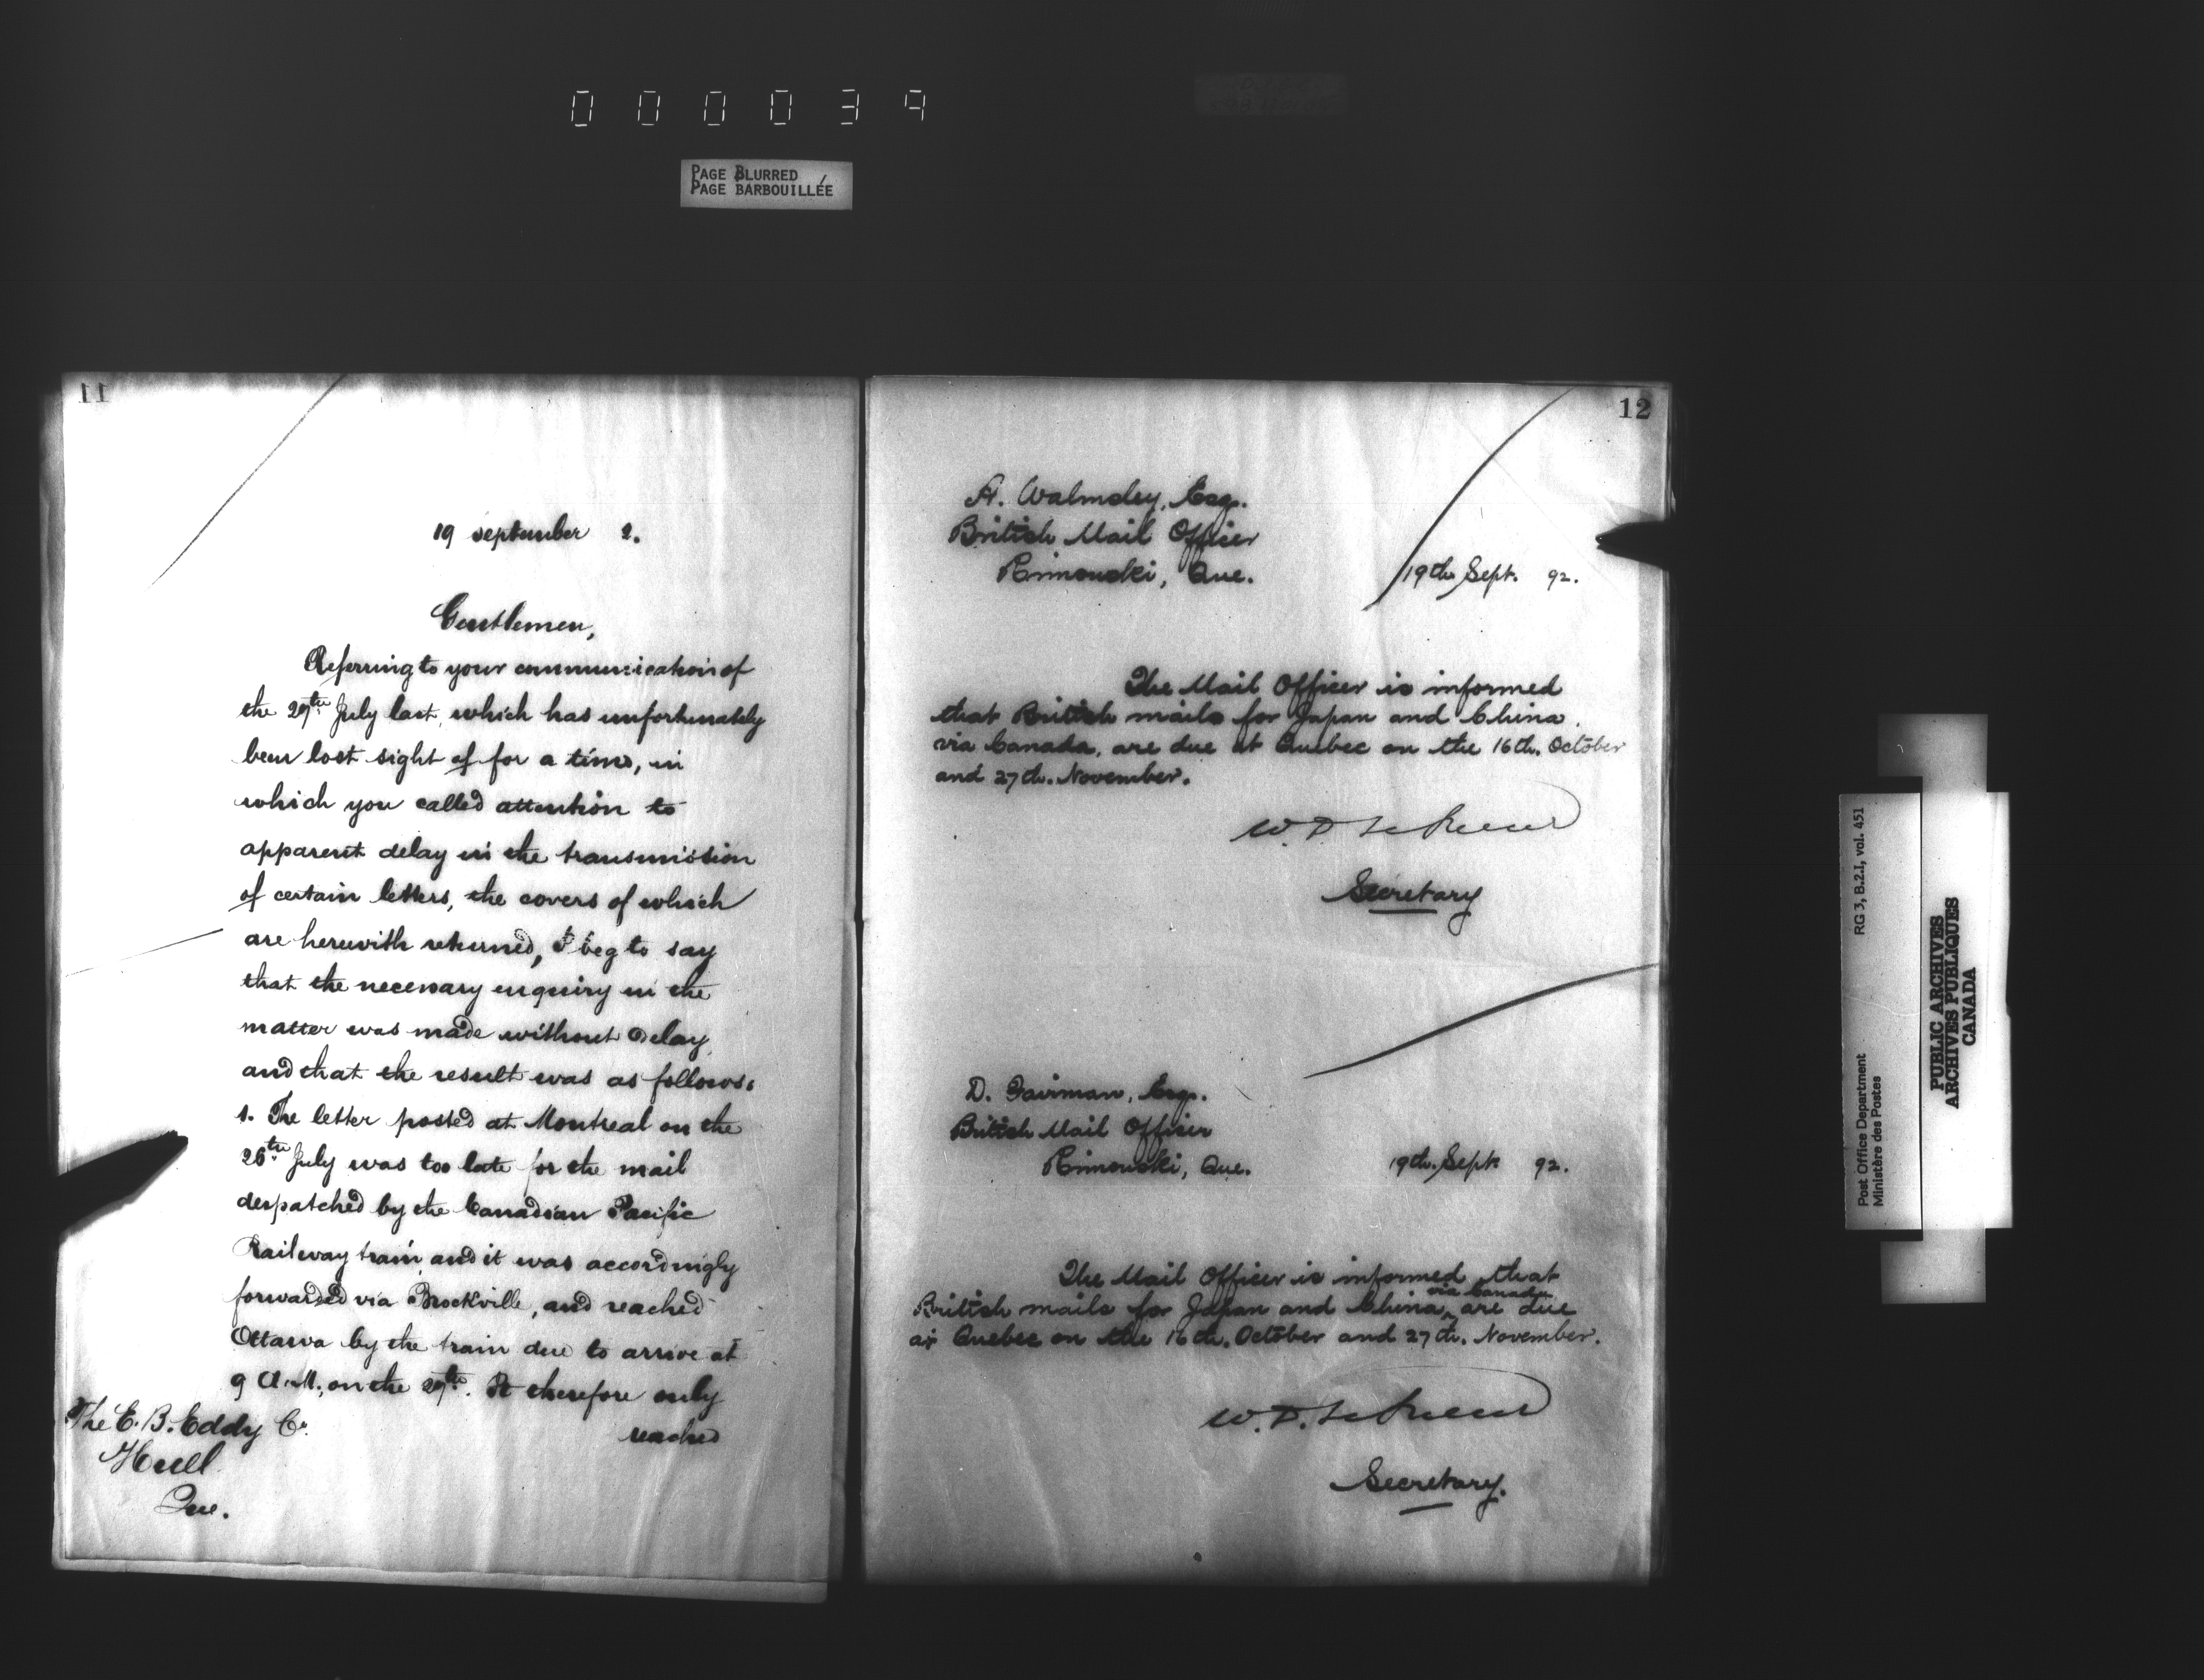 000039
PAGE BLURRED
PAGE BARBOUILLÉE
11
19 September 2.
Gentlemen,
Referring to your communication of
the 29th July last, which has unfortunately
been lost sight of for a time, in
which you called attention to
apparent delay in the transmission
of certain letters, the covers of which
are herewith returned, I beg to say
that the necessary enquiry in the
matter was made without delay
and that the result was as follows:
1. The letter posted at Montreal on the
26th July was too late for the mail
despatched by the Canadian Pacific
Railway train and it was accordingly
forwarded via Brockville, and reached
Ottawa by the train due to arrive at
9 A.M., on the 27th. It therefore only
reached
The E. B. Eddy Co.
Hull
Que.
12
A. Walmsley, Esq.
British Mail Officer
Rimouski, Que.
19th Sept. 92.
The Mail Officer is informed
that British mails for Japan and China,
via Canada, are due at Quebec on the 16th. October
and 27th. November.
W. D.
Secretary
D. Fairman, Esq.
British Mail Officer
Rimouski, Que.
19th. Sept. 92.
The Mail Officer is informed that
British mails for Japan and China, via Canada are due
at Quebec on the 16th. October and 27th. November.
W. D.
Secretary.
RG 3, B.2.I, vol. 451
Post Office Department
Ministère des Postes
PUBLIC ARCHIVES
ARCHIVES PUBLIQUES
CANADA